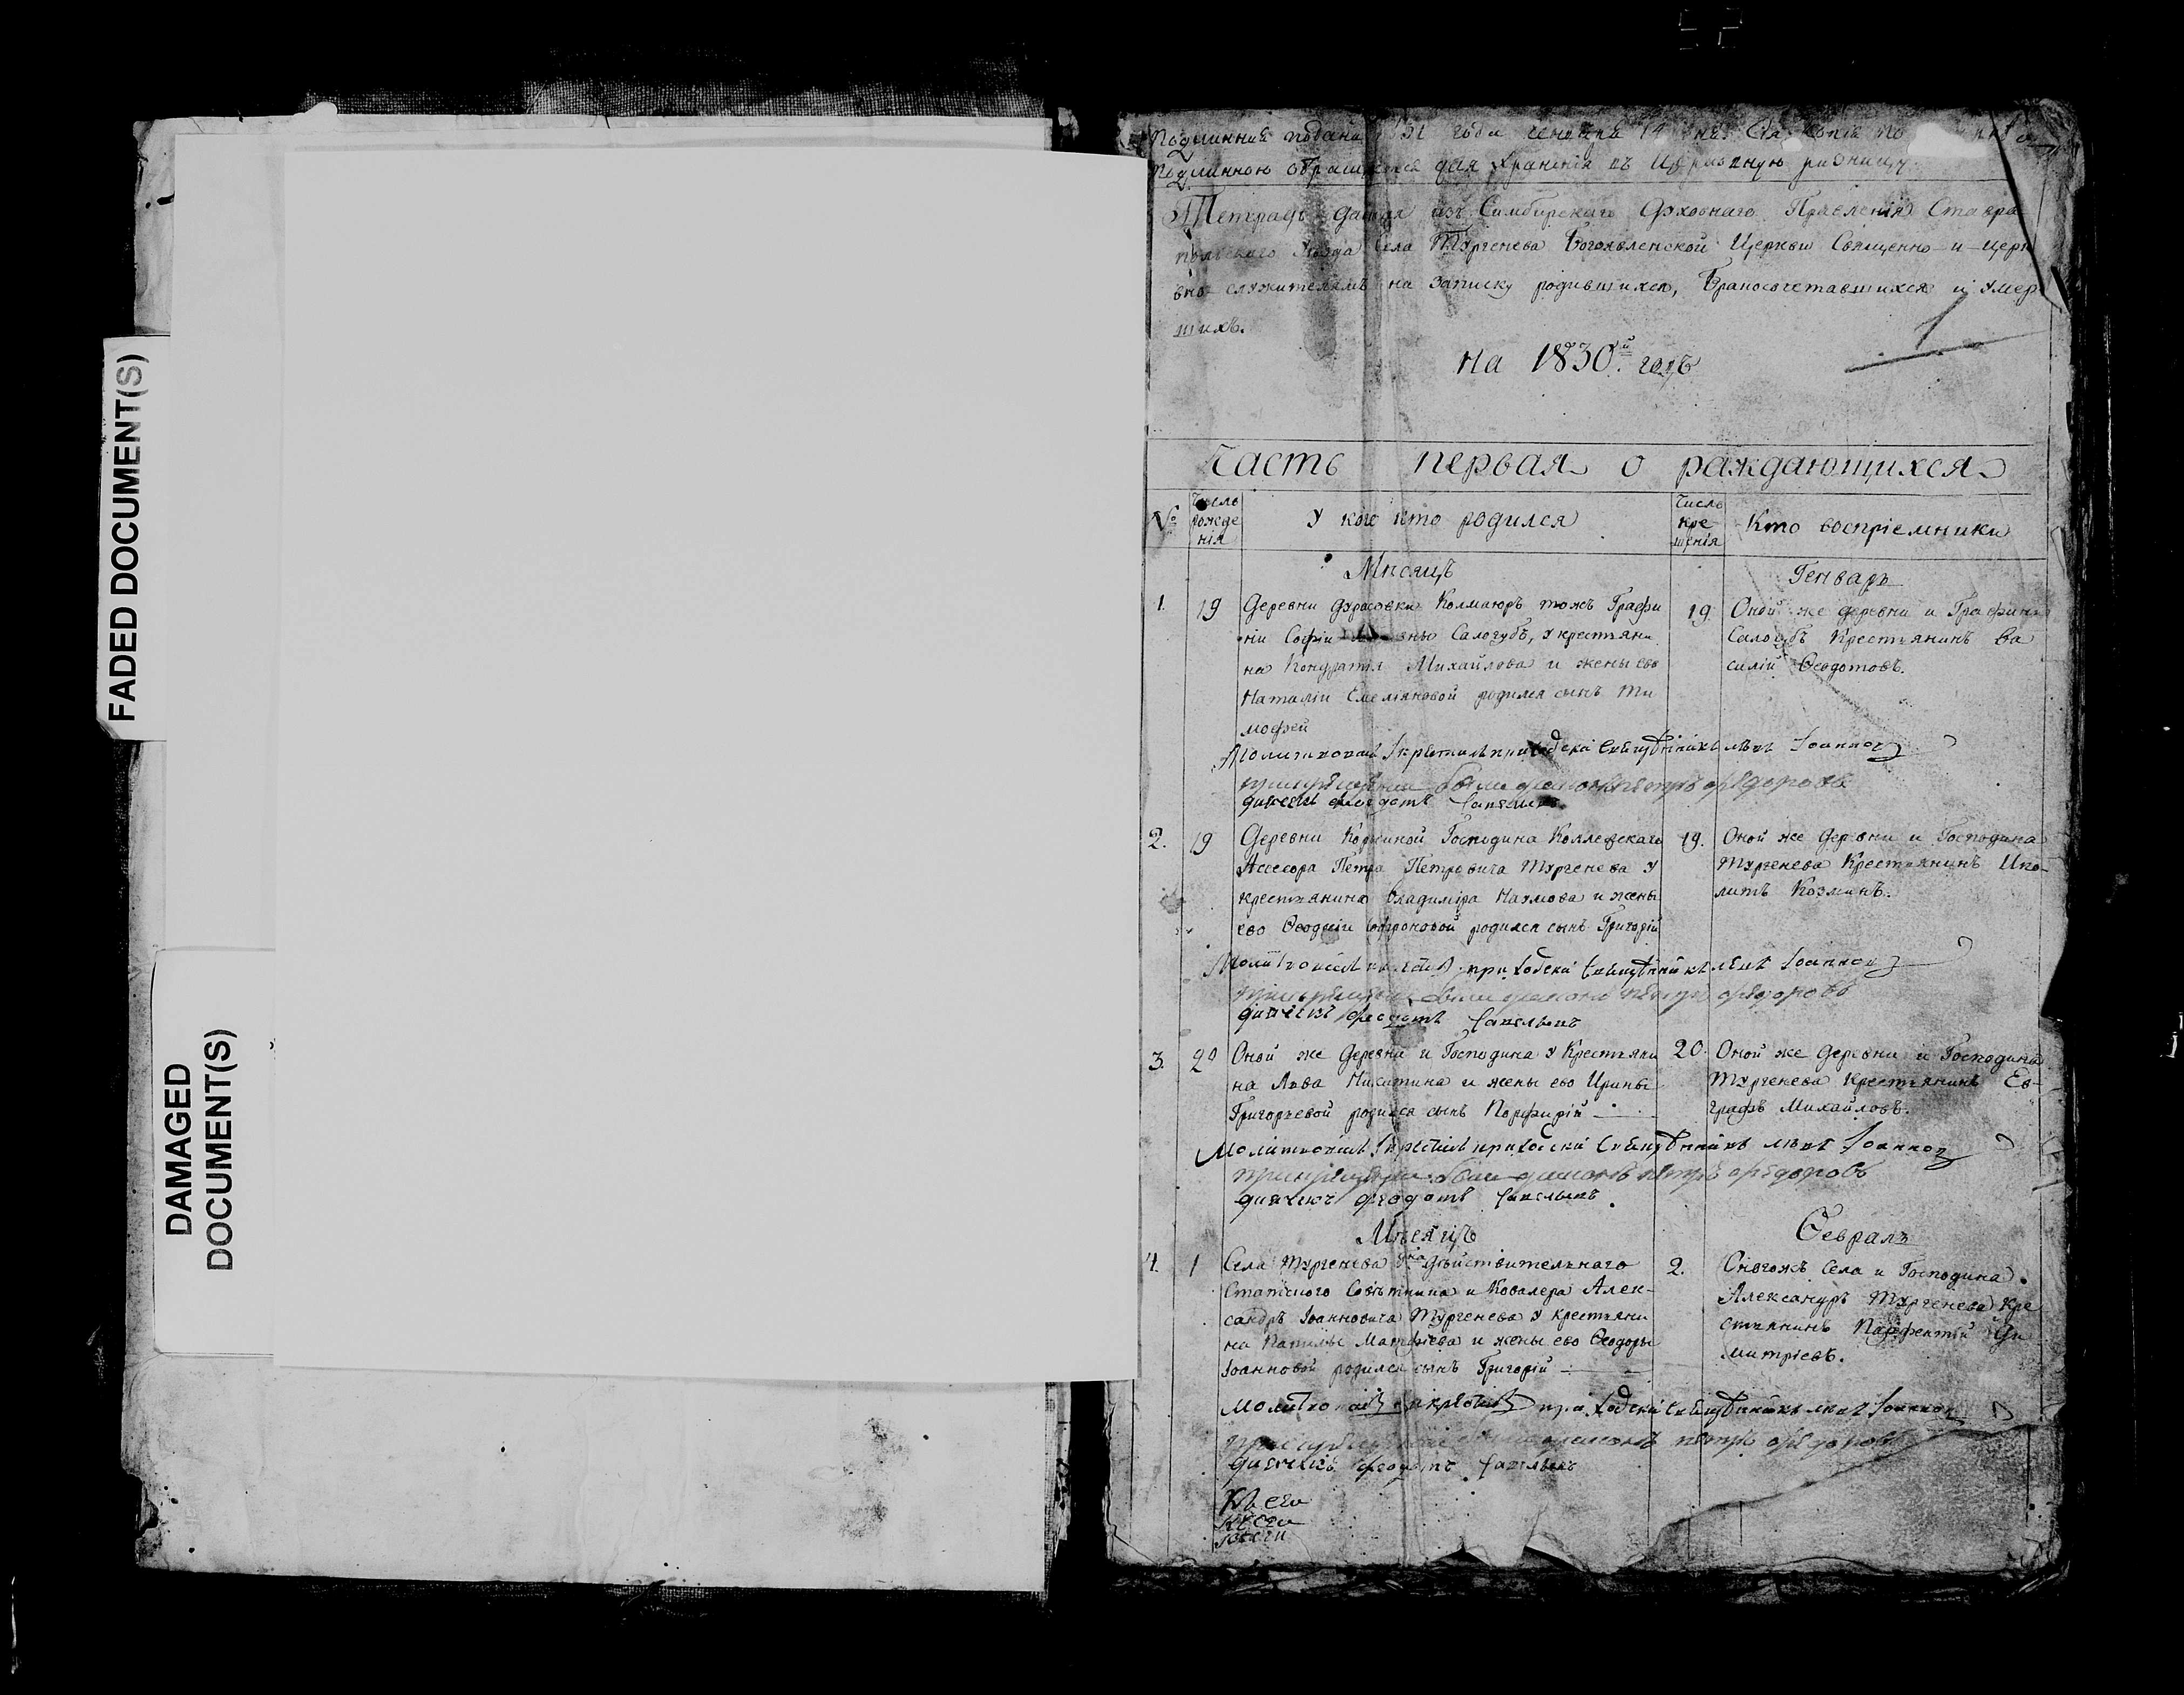 FADED DOCUMENT(S)
DAMAGED
DOCUMENT(S)
года генваря 14
подлинною обращается для храненія въ Церковную ризницу
Тетрадь данная изъ Симбирскаго Духовнаго Правленія Ставро
польскаго Уѣзда Села Тургенева Богоявленской Церкви Священно-и-церк
вно служителямъ на Записку родившихся, Бракосочетавшихся и умер
шихъ.
на 1830й годъ
1
Часть первая о раждающихся
№
Число
рожде
нія
У кого кто родился
Число
кре-
щенія
Кто воспріемники
Мѣсяцъ
Генварь
1.
19
Деревни Дурасовки Колмаюръ тожъ Графи
ни Софіи Салогубъ, у крестьяни
на Кондратія Михайлова и жены его
Наталіи Емеліяновой родился сынъ Ти
мофей
19.
Оной же деревни и Графини
Салогубъ Крестьянинъ Ва
силій Ѳеодотовъ.
приходскій священникъ Левъ Іоанновъ
были діаконъ петръ ѳедоровъ
дьячекъ феодотъ
2.
19
Деревни Господина Коллежскаго
Асессора Петра Петровича Тургенева у
крестьянина Владиміра Наумова и жены
его Ѳеодосіи Софроновой родился сынъ Григорій
19.
Оной же деревни и Господина
Тургенева Крестьянинъ Ипо-
литъ Козминъ.
приходскій священникъ левъ Іоанновъ
были діаконъ петръ ѳедоровъ
дьячекъ феодотъ
3.
20
Оной же Деревни и Господина у Крестьяни
на Льва Никитина и жены его Ирины
Григорьевой родился сынъ Порфирій
20.
Оной же деревни и Господина
Тургенева крестьянинъ Ев-
графъ Михайловъ.
Молитвовалъ и крестилъ приходскій священникъ левъ Іоанновъ
были діаконъ петръ ѳедоровъ
дьячекъ феодотъ
Мѣсяцъ
Февраль
4.
1
Села Тургенева дѣйствительнаго
Статского Совѣтника и Ковалера Алек-
сандръ Іоанновича Тургенева у крестьяни
на Матфѣева и жены его Ѳеодоры
Іоанновой родился сынъ Григорій
2.
Оногожъ Села и Господина
Александръ Тургенева кре
стьянинъ Парфентій Ди
митріевъ.
Молитвовалъ и крестилъ приходскій священникъ левъ Іоанновъ
діаконъ петръ ѳедоровъ
дьячекъ феодотъ
Къ сей
Къ сей